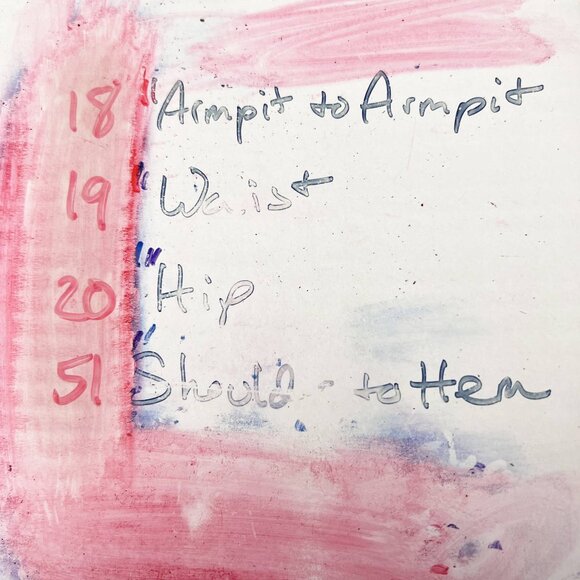 18" Armpit to Armpit
19" Waist
20" Hip
51" Shoulder to Hem